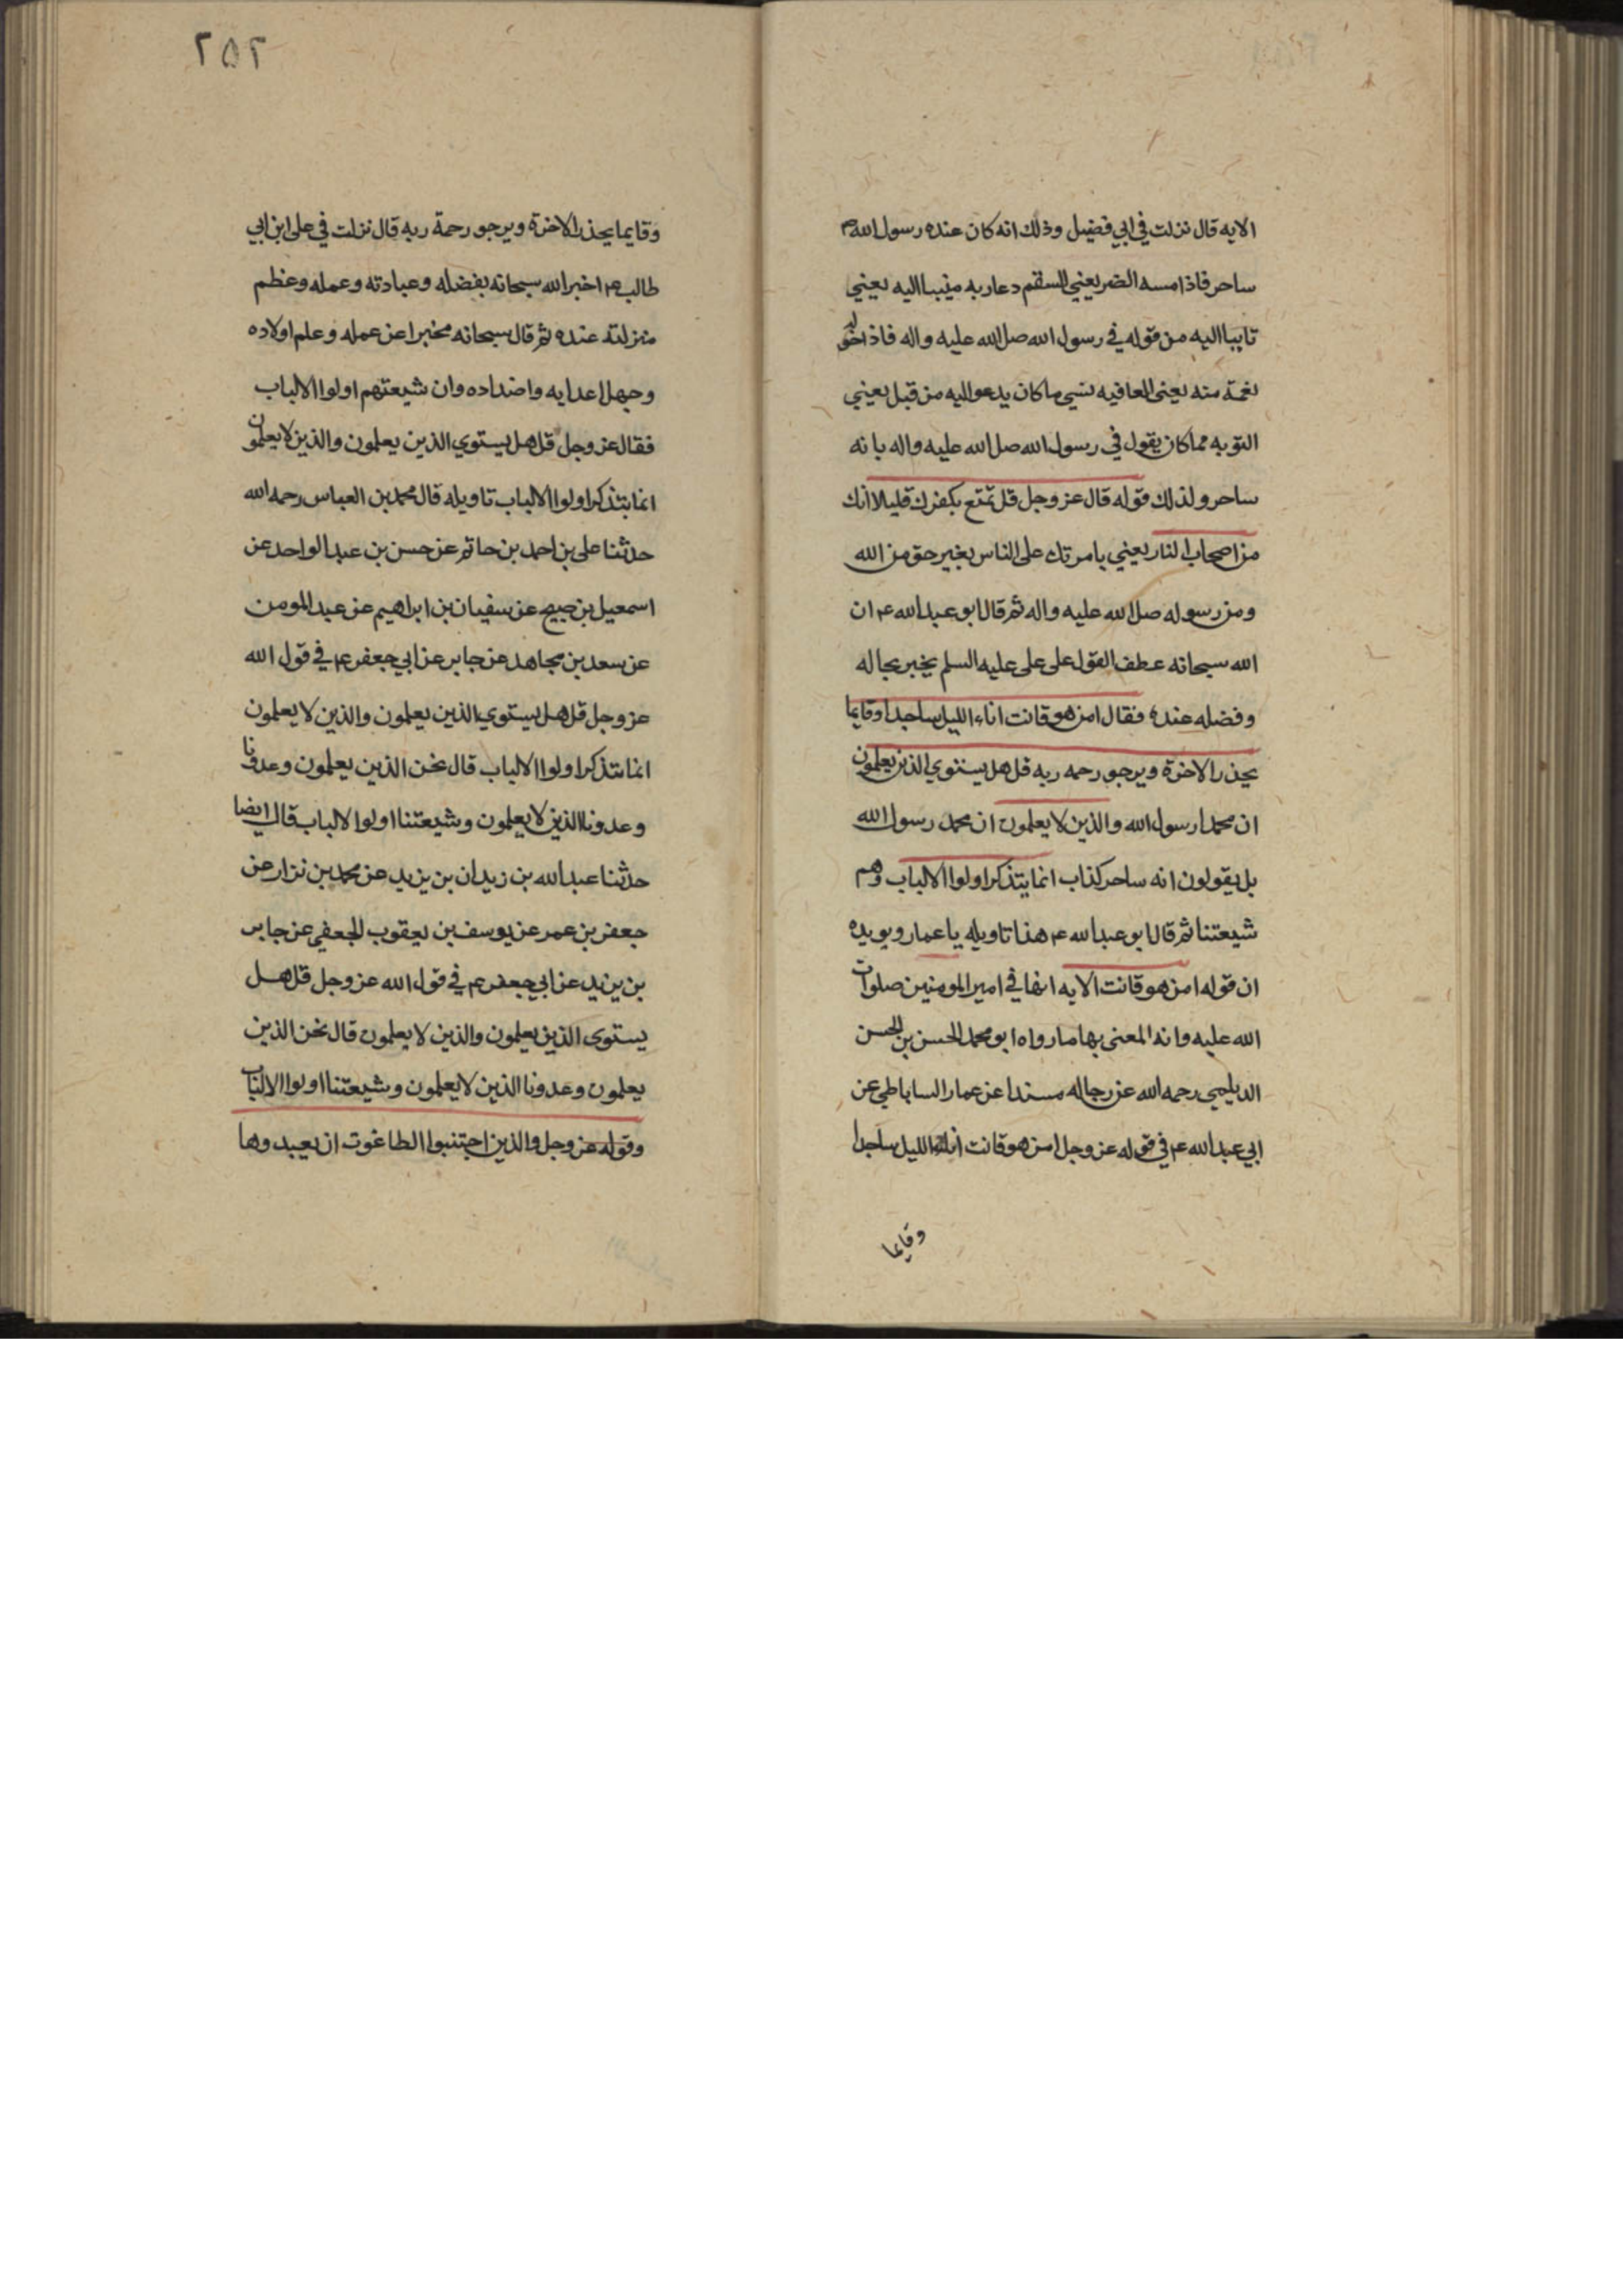 الايه قال نزلت في ابي فضيل وذلك انه كان عنده رسول الله ص
ساحر فاذا مسه الضر يعني السقم دعا ربه منيبا اليه يعني
تايبا اليه من قوله في رسول الله صلى الله عليه واله فاذا خوله
نعمة منه يعني العافيه نسي ما كان يدعو اليه من قبل يعني
التوبه مما كان يقول في رسول الله صلى الله عليه واله بانه
ساحر ولذلك قوله قال عز وجل قل تمتع بكفرك قليلا انك
من اصحاب النار يعني بامرتك على الناس بغير حق من الله
ومن رسوله صلى الله عليه واله ثم قال ابو عبد الله ع ان
الله سبحانه عطف القول على علي عليه السلم يخبر بحاله
وفضله عنده فقال امن هو قانت اناء الليل ساجدا وقايما
يحذر الاخرة ويرجو رحمه ربه قل هل يستوي الذين يعلمون
ان محمدا رسول الله والذين لا يعلمون ان محمد رسول الله
بل يقولون انه ساحر كذاب انما يتذكر اولوا الالباب وهم
شيعتنا ثم قال ابو عبد الله ع هذا تاويله يا عمار ويويده
ان قوله امن هو قانت الايه انها في امير المومنين صلوات
الله عليه وانه المعني بها ما رواه ابو محمد الحسن بن الحسن
الديلمي رحمه الله عن رجاله مسندا عن عمار الساباطي عن
ابي عبد الله ع في قوله عز وجل امن هو قانت اناء الليل ساجدا
وقايما
٢٥٢
وقايما يحذر الاخرة ويرجو رحمة ربه قال نزلت في علي ابن ابي
طالب ع اخبر الله سبحانه بفضله وعبادته وعمله وعظم
منزلته عنده ثم قال سبحانه مخبرا عن عمله وعلم اولاده
وجهل اعدايه واضداده وان شيعتهم اولوا الالباب
فقال عز وجل قل هل يستوي الذين يعلمون والذين لا يعلمون
انما يتذكر اولوا الالباب تاويله قال محمد بن العباس رحمه الله
حدثنا علي بن احمد بن حاتم عن حسن بن عبد الواحد عن
اسمعيل بن صبيح عن سفيان بن ابراهيم عن عبد المومن
عن سعد بن مجاهد عن جابر عن ابي جعفر ع في قول الله
عز وجل قل هل يستوي الذين يعلمون والذين لا يعلمون
انما يتذكر اولوا الالباب قال نحن الذين يعلمون وعدونا
وعدونا الذين لا يعلمون وشيعتنا اولوا الالباب قال ايضا
حدثنا عبد الله بن زيدان بن يزيد عن محمد بن نزار عن
جعفر بن عمر عن يوسف بن يعقوب الجعفي عن جابر
بن يزيد عن ابي جعفر ع في قول الله عز وجل قل هل
يستوى الذين يعلمون والذين لا يعلمون قال نحن الذين
يعلمون وعدونا الذين لا يعلمون وشيعتنا اولوا الالباب
وقوله عز وجل والذين اجتنبوا الطاغوت ان يعبدوها